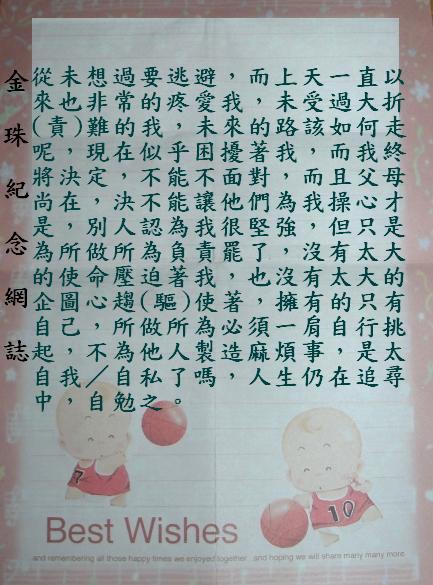 金珠紀念網誌
從未想過要逃避，而上天一直以
來也非常的疼愛我，未受過大折
(責)難的我，未來的路該如何走
呢，現在似乎困擾著我，而我終
將決定，不能不面對，而且父母
尚在，決不能讓他們為我操心才
是，別人認為我很堅強，但只是
為所做所為負責罷了，沒有太大
的使命壓迫著我，也沒有太大的
企圖心，趨(驅)使著，擁有的只有
自己，所做所為必須一肩自行挑
起，不為他人製造麻煩事，是太
自我／自私了嗎，人生仍在追尋
中，自勉之。
7
10
Best Wishes
and remembering all those happy times we enjoyed together...and hoping we will share many many more